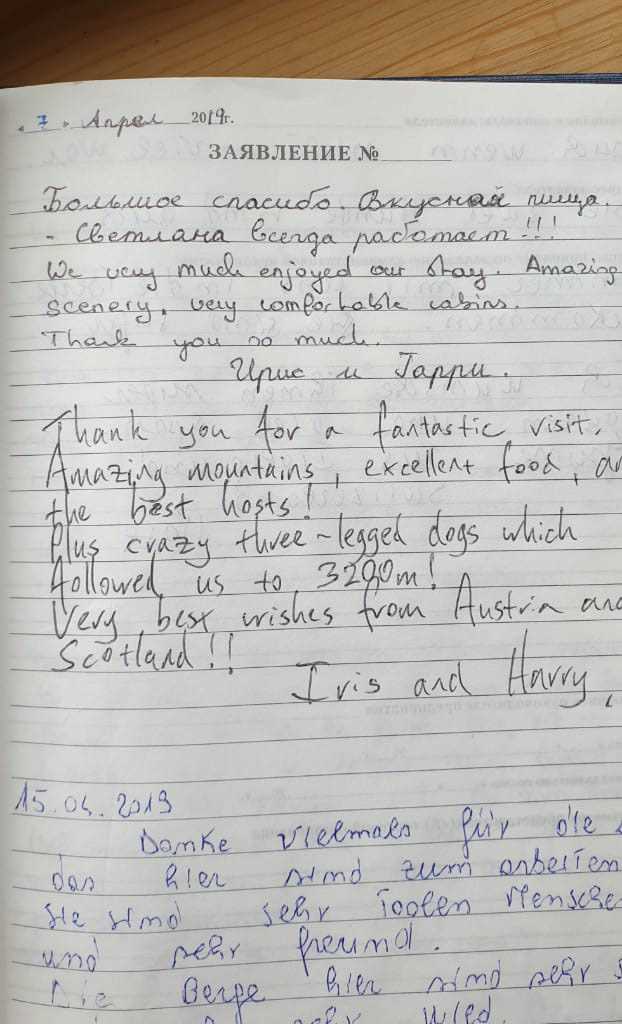 « 7 » Апрел 2019г.
ЗАЯВЛЕНИЕ №
Большое спасибо. Вкусная пища.
- Светлана всегда работает!!!
We very much enjoyed our stay. Amazing
scenery, very comfortable cabins.
Thank you so much.
Ирис и Гарри.
Thank you for a fantastic visit.
Amazing mountains, excellent food, an
the best hosts!
Plus crazy three-legged dogs which
followed us to 3290m!
Very best wishes from Austria and
Scotland!!
Iris and Harry,
15.04.2019
Danke vielmals für die
das hier sind zum arbeiten
sie sind sehr Toolen Mensche
und sehr freund.
Die Berge hier sind sehr s
sehr